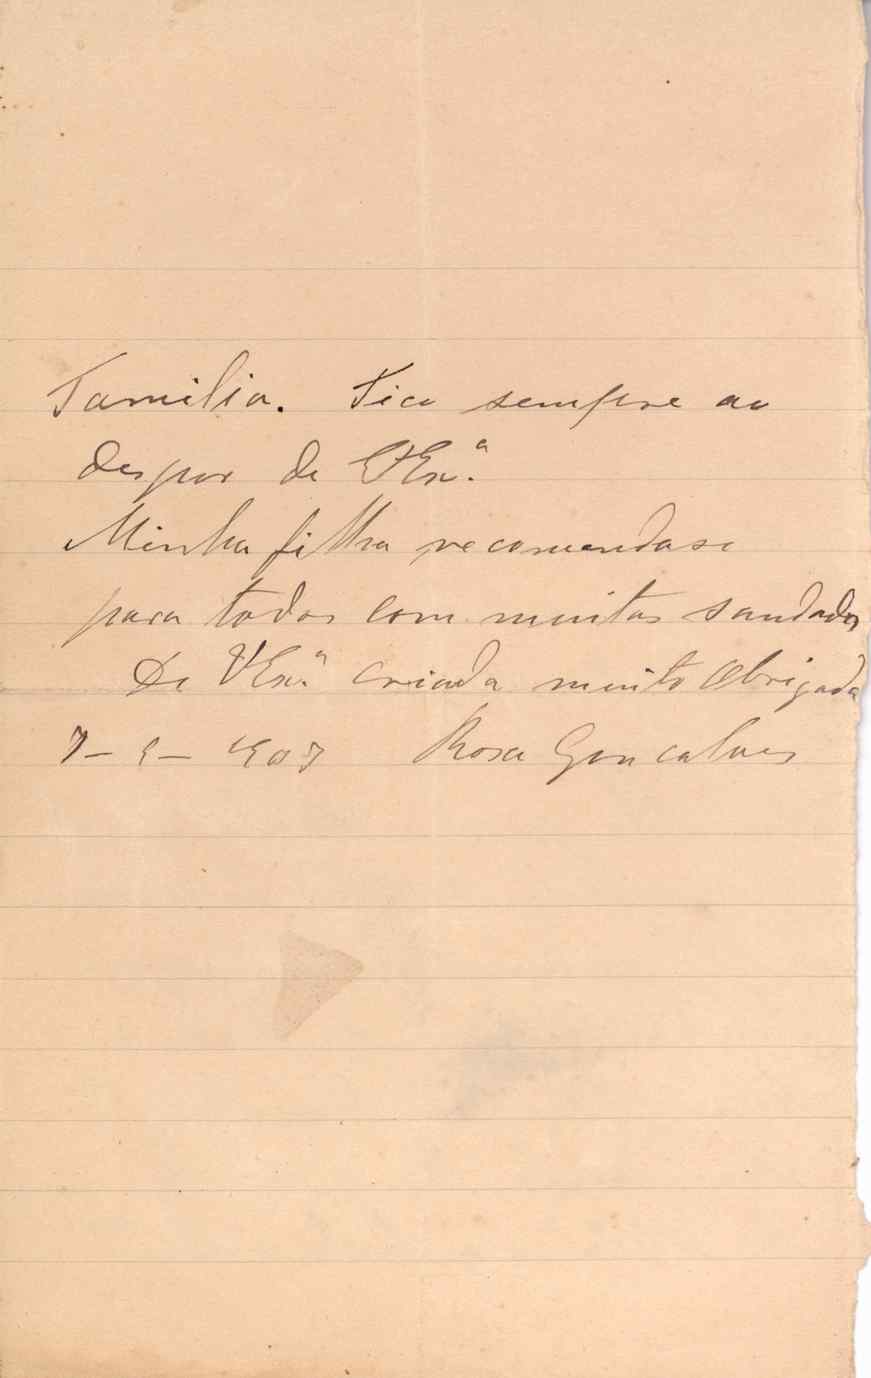 Familia. Fico sempre ao
despor de VExª.
Minha filha recomendase
para todos com muitas saudades
De VExª. criada muito Obrigada
7 - 9 - 1907 Rosa Goncalves